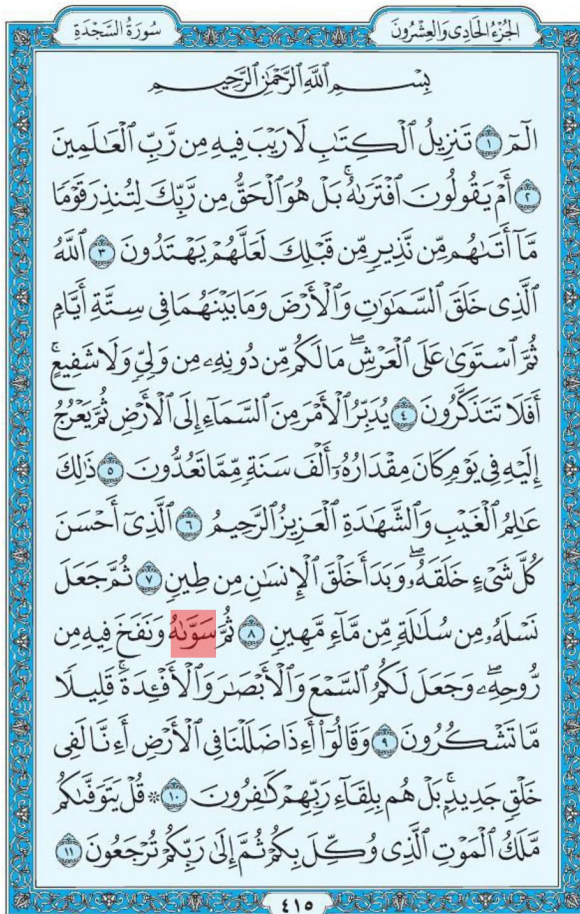 سُورَةُ السَّجْدَةِ
الجُزْءُ الحَادِي وَالعِشْرُونَ
بِسْمِ ٱللَّهِ ٱلرَّحْمَٰنِ ٱلرَّحِيمِ
الٓمٓ ١ تَنزِيلُ ٱلْكِتَٰبِ لَا رَيْبَ فِيهِ مِن رَّبِّ ٱلْعَٰلَمِينَ
٢ أَمْ يَقُولُونَ ٱفْتَرَىٰهُۚ بَلْ هُوَ ٱلْحَقُّ مِن رَّبِّكَ لِتُنذِرَ قَوْمًا
مَّآ أَتَىٰهُم مِّن نَّذِيرٍ مِّن قَبْلِكَ لَعَلَّهُمْ يَهْتَدُونَ ٣ ٱللَّهُ
ٱلَّذِى خَلَقَ ٱلسَّمَٰوَٰتِ وَٱلْأَرْضَ وَمَا بَيْنَهُمَا فِى سِتَّةِ أَيَّامٍ
ثُمَّ ٱسْتَوَىٰ عَلَى ٱلْعَرْشِۖ مَا لَكُم مِّن دُونِهِۦ مِن وَلِىٍّ وَلَا شَفِيعٍۚ
أَفَلَا تَتَذَكَّرُونَ ٤ يُدَبِّرُ ٱلْأَمْرَ مِنَ ٱلسَّمَآءِ إِلَى ٱلْأَرْضِ ثُمَّ يَعْرُجُ
إِلَيْهِ فِى يَوْمٍ كَانَ مِقْدَارُهُۥٓ أَلْفَ سَنَةٍ مِّمَّا تَعُدُّونَ ٥ ذَٰلِكَ
عَٰلِمُ ٱلْغَيْبِ وَٱلشَّهَٰدَةِ ٱلْعَزِيزُ ٱلرَّحِيمُ ٦ ٱلَّذِىٓ أَحْسَنَ
كُلَّ شَىْءٍ خَلَقَهُۥۖ وَبَدَأَ خَلْقَ ٱلْإِنسَٰنِ مِن طِينٍ ٧ ثُمَّ جَعَلَ
نَسْلَهُۥ مِن سُلَٰلَةٍ مِّن مَّآءٍ مَّهِينٍ ٨ ثُمَّ سَوَّىٰهُ وَنَفَخَ فِيهِ مِن
رُّوحِهِۦۖ وَجَعَلَ لَكُمُ ٱلسَّمْعَ وَٱلْأَبْصَٰرَ وَٱلْأَفْـِٔدَةَۚ قَلِيلًا
مَّا تَشْكُرُونَ ٩ وَقَالُوٓا۟ أَءِذَا ضَلَلْنَا فِى ٱلْأَرْضِ أَءِنَّا لَفِى
خَلْقٍ جَدِيدٍۭۚ بَلْ هُم بِلِقَآءِ رَبِّهِمْ كَٰفِرُونَ ١٠ ۞ قُلْ يَتَوَفَّىٰكُم
مَّلَكُ ٱلْمَوْتِ ٱلَّذِى وُكِّلَ بِكُمْ ثُمَّ إِلَىٰ رَبِّكُمْ تُرْجَعُونَ ١١
٤١٥